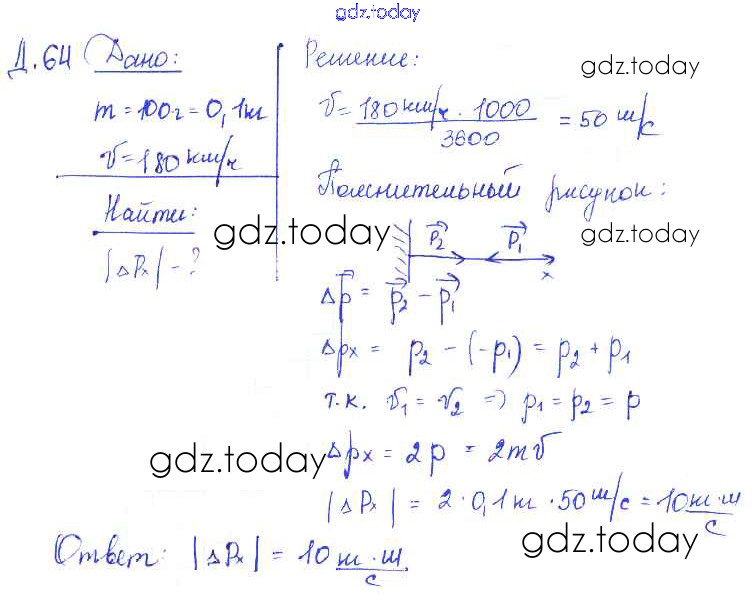 gdz.today
Д.64 Дано:
m = 100г = 0,1кг
v = 180 км/ч
Найти:
|Δpₓ| - ?
Решение:
gdz.today
v = 180 км/ч · 1000 / 3600 = 50 м/с
Пояснительный рисунок:
gdz.today
gdz.today
p⃗₂ p⃗₁
x
Δp⃗ = p⃗₂ - p⃗₁
Δpx = p₂ - (-p₁) = p₂ + p₁
т.к. v₁ = v₂ => p₁ = p₂ = p
Δpx = 2p = 2mv
gdz.today
|Δpₓ| = 2 · 0,1кг · 50 м/с = 10 кг·м/с
Ответ: |Δpₓ| = 10 кг·м/с.
gdz.today